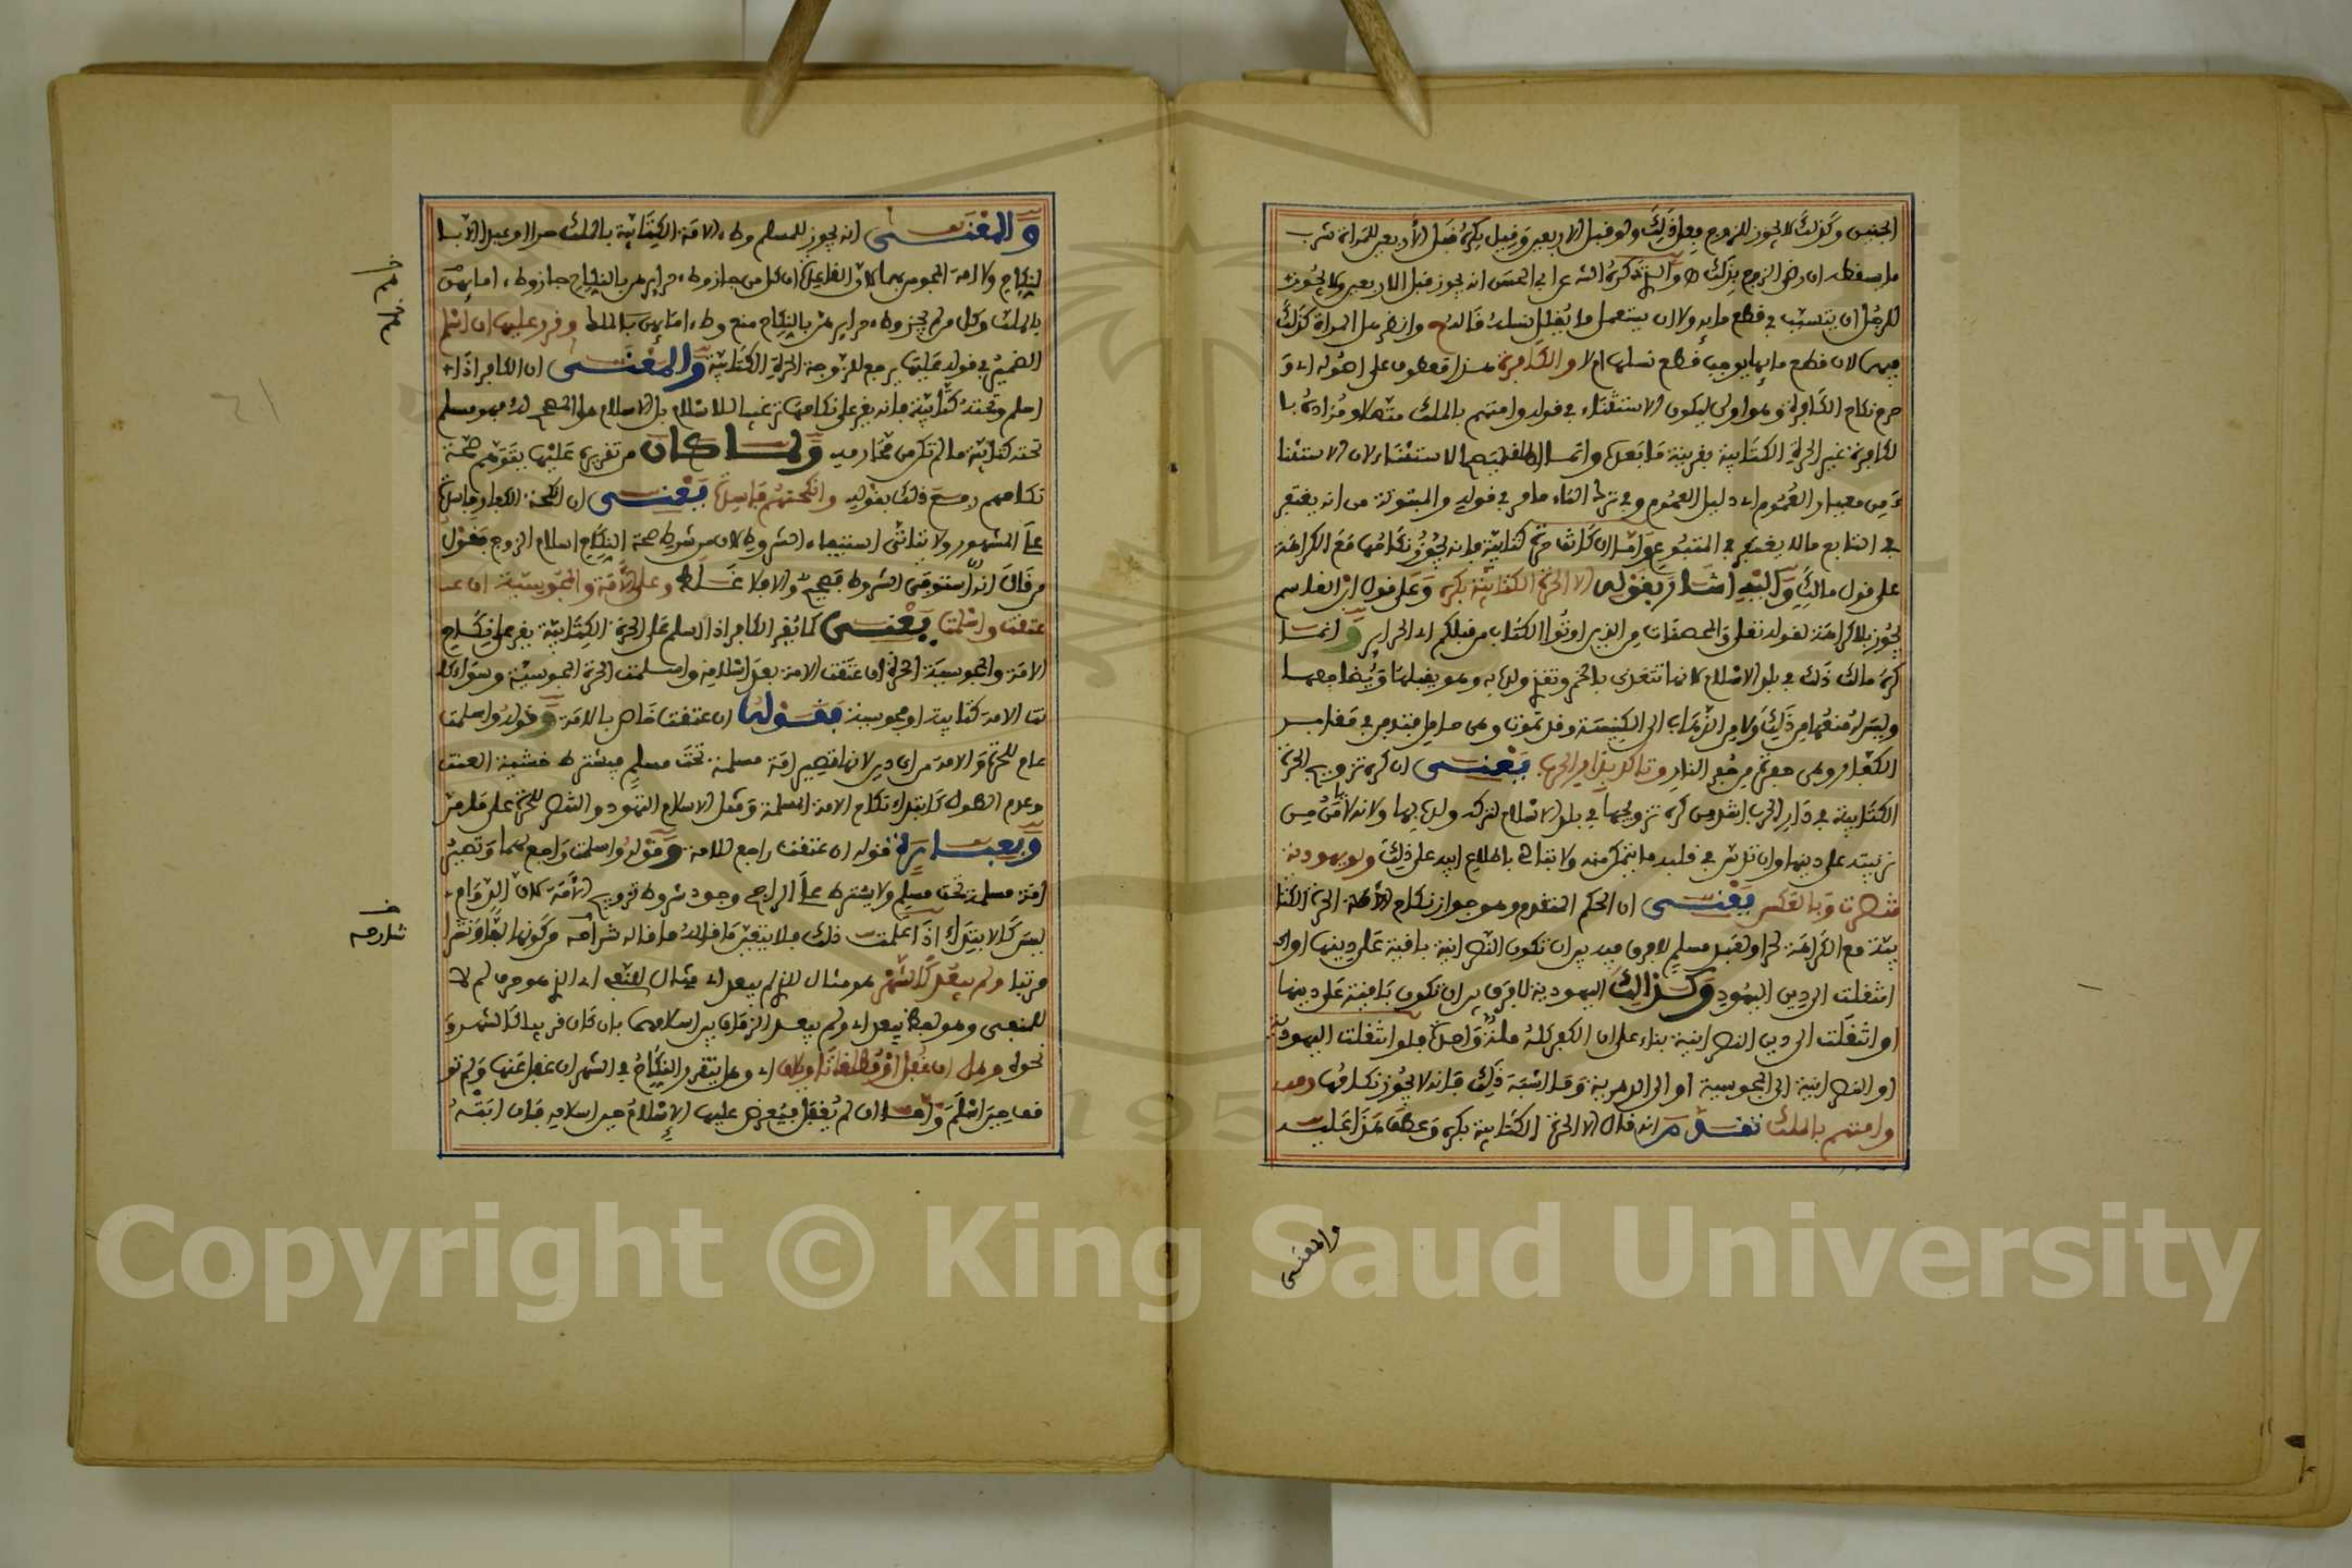 الجنين وكذلك لا يجوز للزوج فعل ذلك ولو قبل الاربعين وقيل يكره قبل الاربعين للمراة شرب
ما يسقطه ان رضي الزوج بذلك والذي ذكره الشيخ عن ابي الحسن انه يجوز قبل الاربعين ولا يجوز
للرجل ان يتسبب في قطع مائه ولا ان يستعمل ما يقلل نسله قاله ح وانظر هل المراة كذلك
فيهما لان قطع مائها يوجب قطع نسلها ام لا والكافرة هذا معطوف على اصوله اي و
حرم نكاح الكافرة وهو اولى ليكون الاستثناء في قوله وامتهم بالملك متصلا ومراده با
لكافرة غير الحرة الكتابية بقرينة ما بعده وانما الاستثناء لان الاستثنا
ء من معيار العموم اي دليل العموم وفي ترك التاء ما مر في قوله والمبتوتة من انه يغتفر
في التابع ما لا يغتفر في المتبوع واما ان كانت حرة كتابية فانه يجوز نكاحها مع الكراهة
على قول مالك واليه اشار بقوله الا الحرة الكتابية بكره وعلى قول ابن القاسم
يجوز بلا كراهة لقوله تعلى والمحصنات من الذين اوتوا الكتاب من قبلكم اي الحراير وانما
كره مالك ذلك في بلد الاسلام لانها تتغذى بالخمر وتغذي ولده به وهو يقبلها ويضاجعها
وليس له منعها من ذلك ولا من الذهاب الى الكنيسة وقد تموت وهي حامل فتدفن في مقابر
الكفار وهي حفرة من حفر النار وتاكد بدار الحرب يعني ان كره تزويج الحرة
الكتابية في دار الحرب اشد من كره تزويجها في بلد الاسلام لتركه ولده بها ولانه لا يامن من
تربيته على دينها وان تدس في قلبه ما يتمكن منه ولا تبالي باطلاع ابيه على ذلك ولو يهودية
تنصرت وبالعكس يعني ان الحكم المتقدم وهو جواز نكاح الحرة الكتا
بية مع الكراهة لحر او لعبد مسلم لا فرق فيه بين ان تكون النصرانية باقية على دينها او
انتقلت الى دين اليهود وكذلك اليهودية لا فرق بين ان تكون باقية على دينها
او انتقلت الى دين النصرانية بناء على ان الكفر كله ملة واحدة فلو انتقلت اليهودية
او النصرانية الى المجوسية او الى الدهرية وما اشبه ذلك فانه لا يجوز نكاحها
وامتهم بالملك تقدم انه قال الا الحرة الكتابية بكره وعطف هذا عليه
والمعنى
والمعنى انه يجوز للمسلم وطء الامة الكتابية بالملك حرا او عبدا لا با
لنكاح ولا امة المجوس بهما لان القاعدة ان كل من جاز وطء حرايرهم بالنكاح جاز وطء امايهم
بالملك وكل من لم يجز وطء حرايرهم بالنكاح منع وطء امايهم بالملك وقرر عليها ان اسلم
الضمير في قوله عليها يرجع للزوجة الحرة الكتابية والمعنى ان الكافر اذا
اسلم وتحته كتابية فانه يقر على نكاحها ترغيبا للاسلام بل الاسلام هو المصحح له فهو مسلم
تحته كتابية ما لم تكن من محارمه ولما كان من تقريره عليها يتوهم صحة
نكاحهم دفع ذلك بقوله وانكحتهم فاسدة يعني ان انكحة الكفار فاسدة
على المشهور ولا يتاتى استيفاء الشروط لان من شرط صحة النكاح اسلام الزوج فقول
من قال انه ان استوفى الشروط فصحيح والا فلا غير ظاهر وعلى الامة والمجوسية ان
عتقت واسلمت يعني كما يقر الكافر اذا اسلم على الحرة الكتابية يقر على نكاح
الامة والمجوسية الحرة ان عتقت الامة بعد اسلامه واسلمت الحرة المجوسية وسواء كا
نت الامة كتابية او مجوسية فقوله ان عتقت خاص بالامة وقوله واسلمت
عام للحرة والامة من اي دين لانها تصير امة مسلمة تحت مسلم فيشترط خشية العنت
وعدم الطول كابتداء نكاح الامة المسلمة ومثل الاسلام التهود والتنصر للحرة على ما مر
وبعبارة قوله ان عتقت راجع للامة وقوله واسلمت راجع لهما وتصير
امة مسلمة تحت مسلم ولا يشترط على الراجح وجود شروط تزويج الامة لان الدوام
ليس كالابتداء اذا علمت ذلك فلا يتغير ما قاله شراحه من كونها لفا ونشرا
مرتبا ولم يبعد كالشهر هو مثال للذي لم يبعد اي مثال للمنفي اي الذي هو من لم لا
للنفي وهو لفظ يبعد اي ولم يبعد الزمان بين اسلامهما بان كان قريبا كالشهر و
نحوه وهل ان غفل او مطلقا تاويلان اي وهل يتقرر النكاح في الشهر ان غفل عنها ولم تو
قف حين اسلم واما ان لم يغفل فيعرض عليها الاسلام حين اسلامه فان ابته
شارحه
Copyright © King Saud University
195